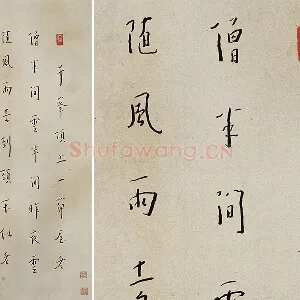 千峯頂上一間屋老
僧半間雲半間昨夜雲
随風雨去到頭不似老
僧半間雲
随風雨去
Shufawang.CN